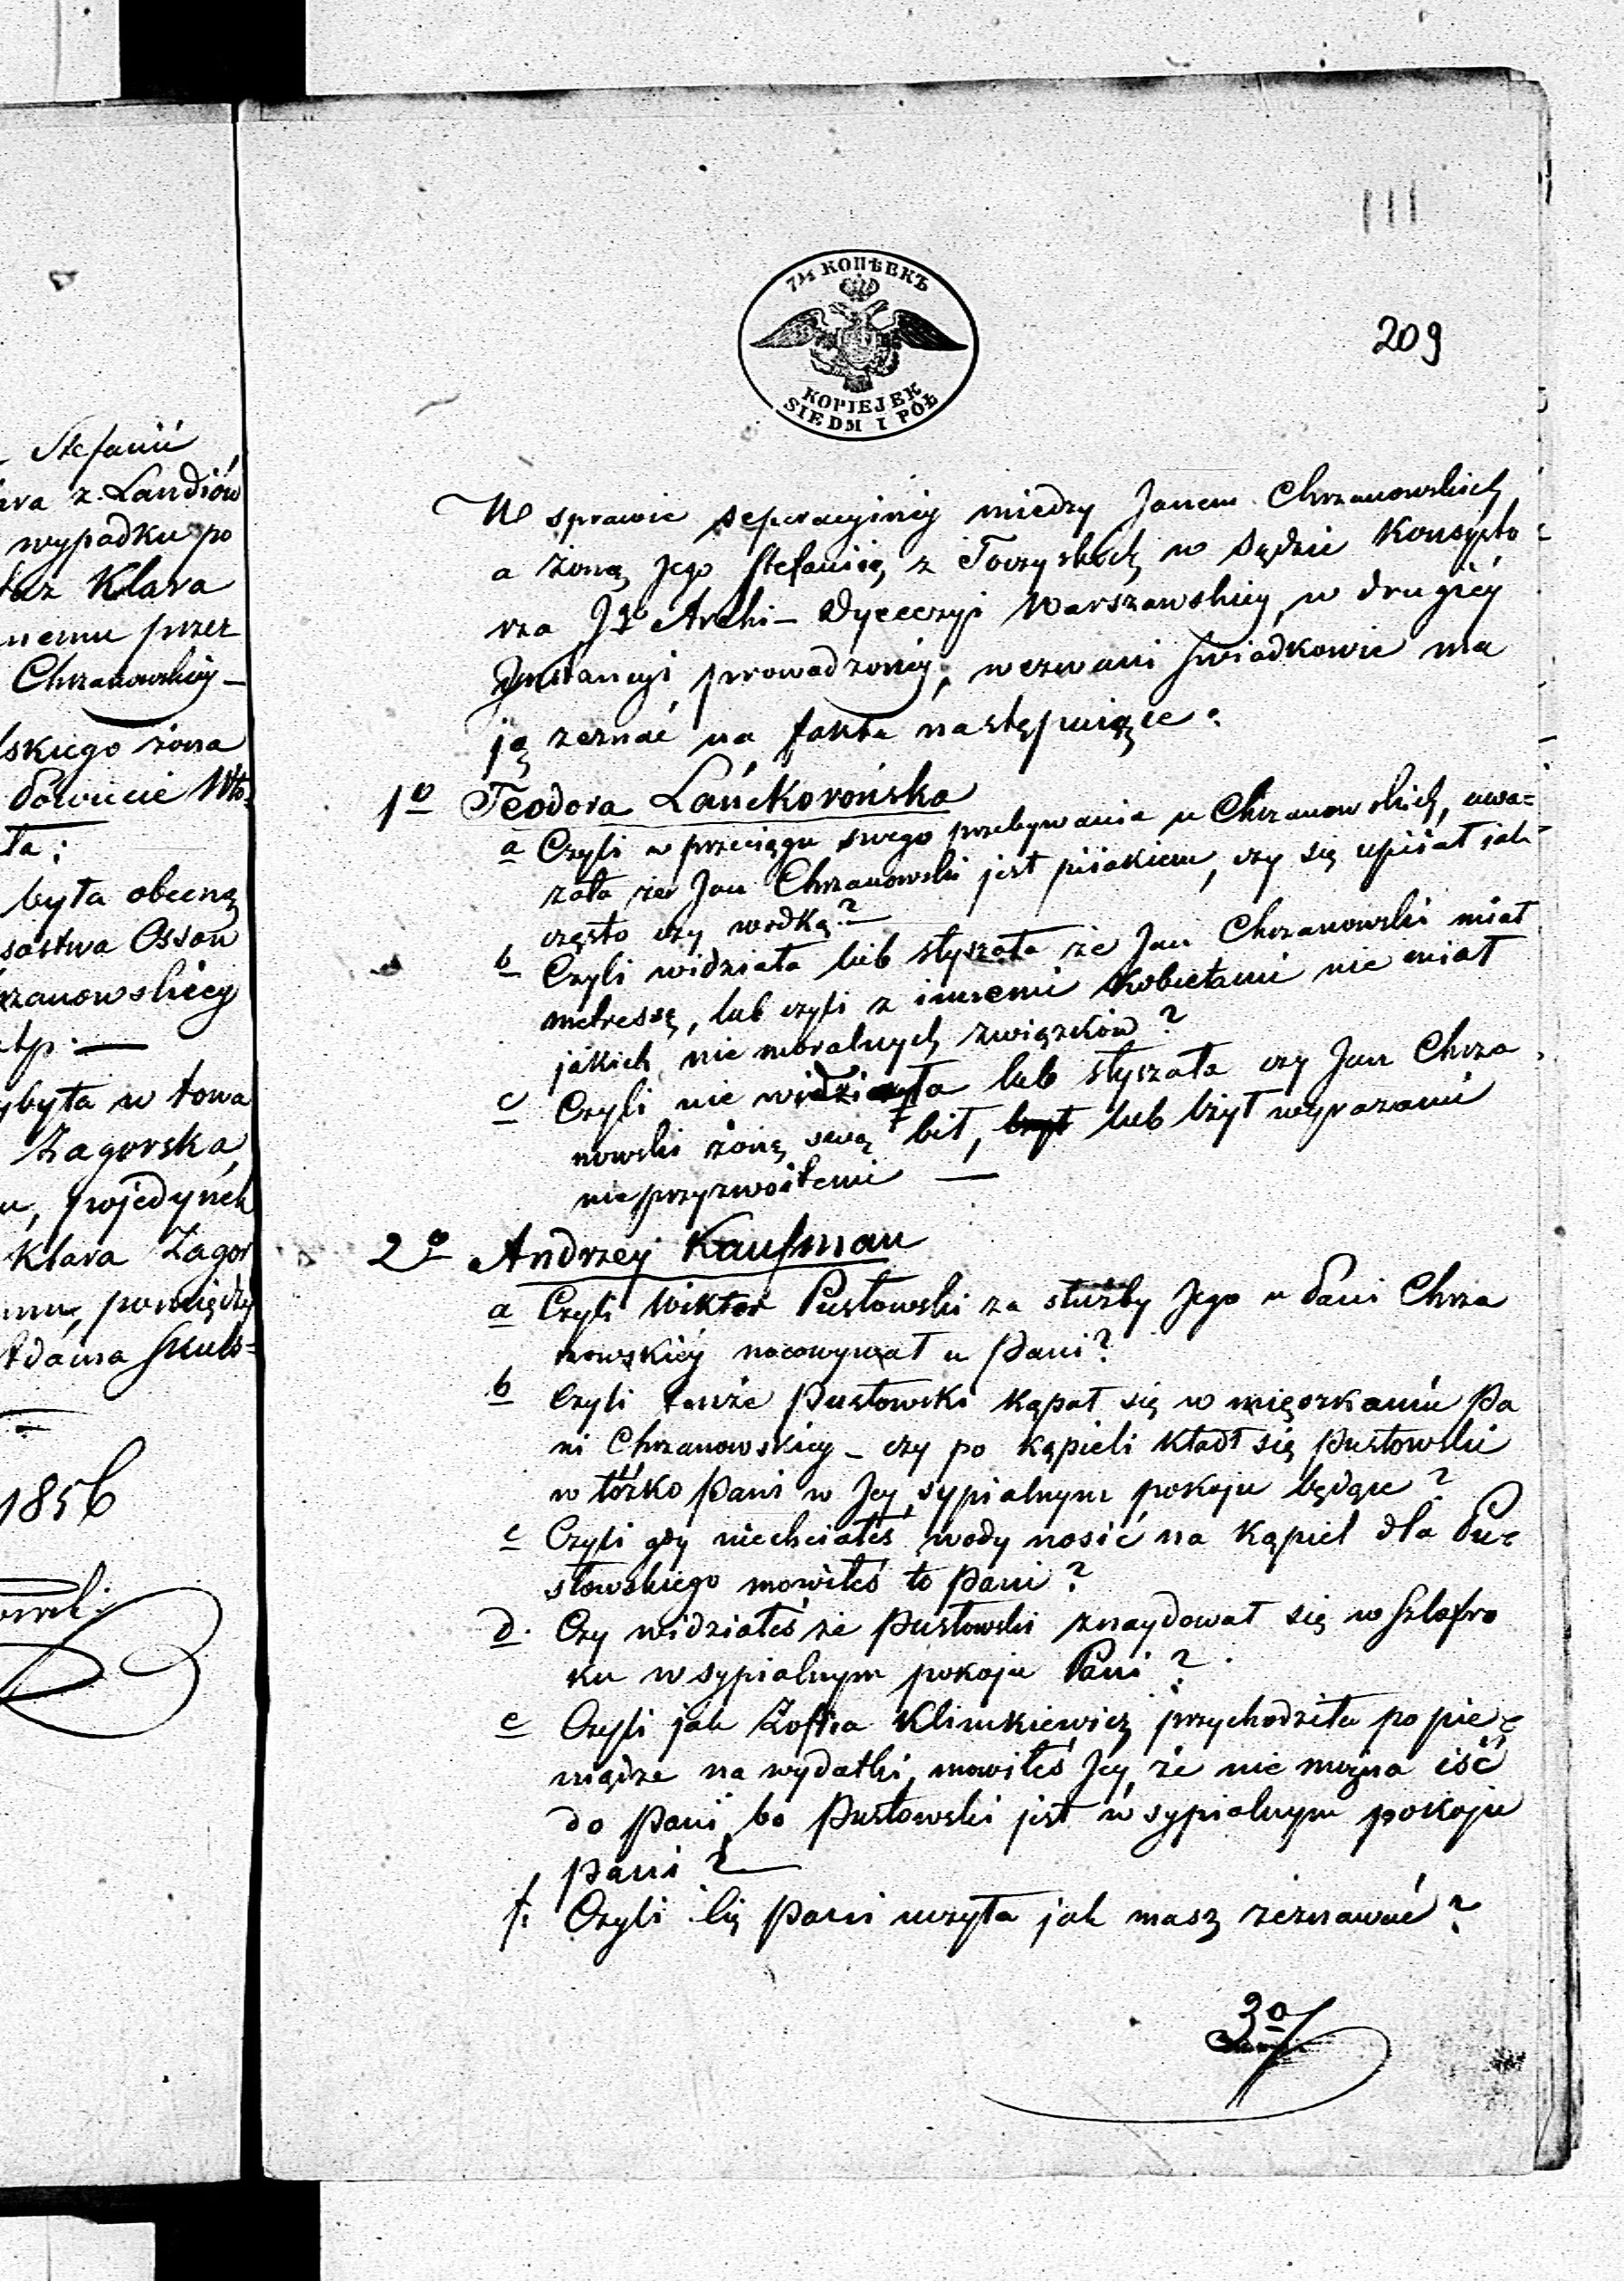 Stefanii
z Landiów
wypadku po
Klara
przez
Chrzanowskiey –
żona
Powiecie
ła:
była obecną
Osson
rzanowskiey
była w towa
Zagorska,
pojedynek
Klara Zagor
pomiędzy
Adama
1856
111
209
7½ КОПѢЕКЪ
KOPIEJEK
SIEDM I PÓŁ
W sprawie seperacyiney miedzy Janem Chrzanowskich
a żoną Jego Stefaniią z Toczyskich w Sądzie Konsysto
rza Jgo Archi-Dyecezyi Warszawskiey w drugiéy
Instancyi prowadzoney, wezwani świadkowie ma
ją zeznać na fakta następuiące:
1o Teodora Lánckorońska
a Czyli w przeciągu swego przebywania u Chrzanowskich, uwa=
zała że Jan Chrzanowski jest piiakiem, czy się upiiał jak
często czy wodką? –
b Czyli widziała lub słyszała że Jan Chrzanowski miał
metressę, lub czyli z innemi kobietami nie miał
jakich nie moralnych związków?
c Czyli nie widziała lub słyszała czy Jan Chrza
nowski żonę swą bił, lub lżył wyrazami
nieprzyzwoitemi —
2o Andrzey Kaufman
a Czyli Wiktor Pusłowski za służby Jego u Pani Chrza
nowskiéy nocowywał u Pani?
b Czyli tenże Pusłowski kąpał się w mięszkaniu Pa
ni Chrzanowskiey – czy po kąpieli kładł się Pusłowski
w łóżko Pani w Jey sypialnym pokoju będące?
c Czyli gdy niechciałeś wody nosić na kąpiel dla Pu=
słowskiego mowiłeś to Pani?
d. Czy widziałeś że Pusłowski znaydował się w szlafro
ku w sypialnym pokoju Pani?
e Czyli jak Zofiia Klimkiewicz przychodziła po pie=
niądze na wydatki, mowiłeś Jey, że nie można iść
do Pani, bo Pusłowski jest w sypialnym pokoju
Pani? —
f: Czyli Cię Pani uczyła jak masz zeznawać?
3o